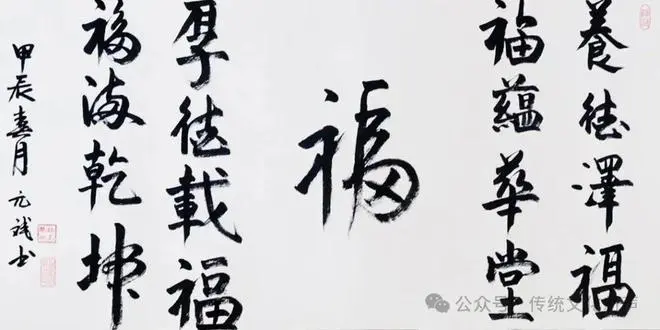 養德澤福
福蘊華堂
福
厚德載福
福满乾坤
甲辰春月 元 书
公众号 · 传统文 声